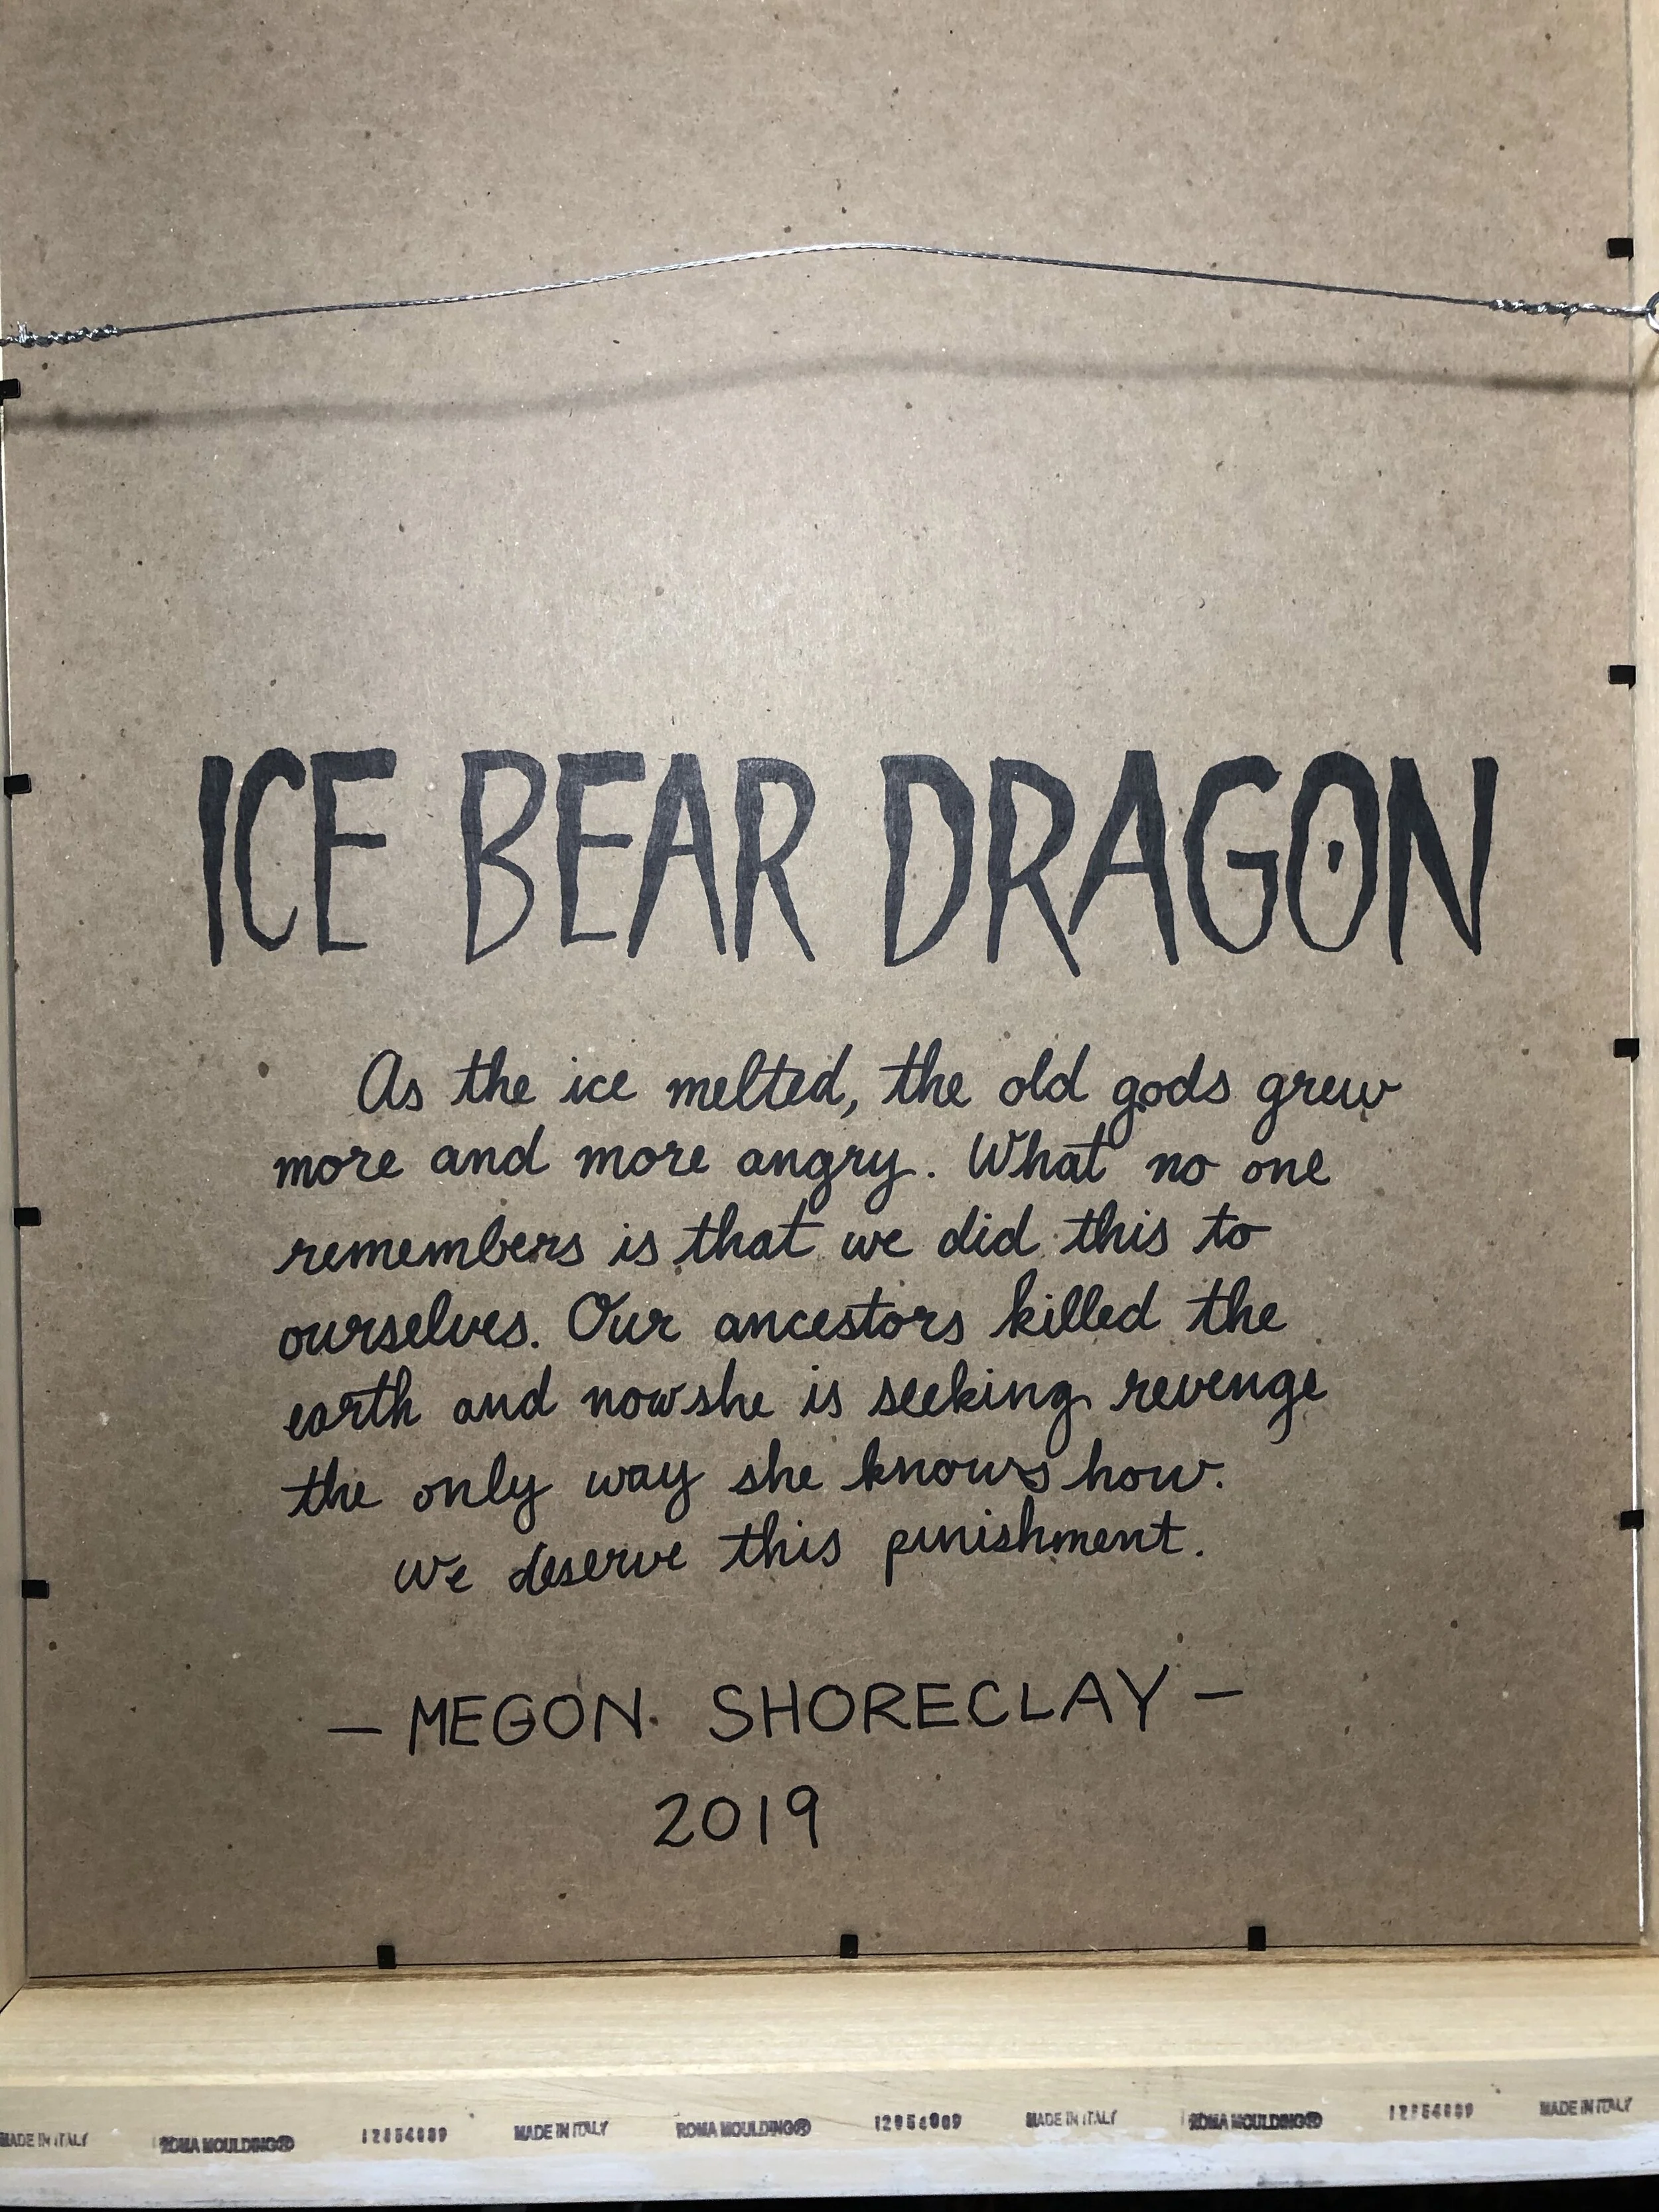 ICE BEAR DRAGON
As the ice melted, the old gods grew
more and more angry. What no one
remembers is that we did this to
ourselves. Our ancestors killed the
earth and now she is seeking revenge
the only way she knows how.
we deserve this punishment.
— MEGON SHORECLAY —
2019
MADE IN ITALY ROMA MOULDING® MADE IN ITALY ROMA MOULDING® MADE IN ITALY ROMA MOULDING® MADE IN ITALY